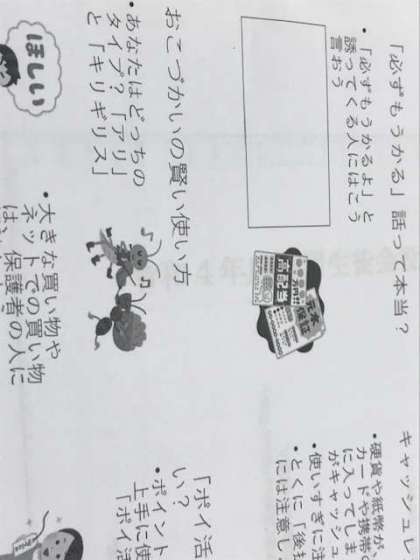 「必ずもうかる」話って本当？
•「必ずもうかるよ」と
誘ってくる人にはこう
言おう
元本
保証
高配当
おこづかいの賢い使い方
•あなたはどっちの
タイプ？「アリ」
と「キリギリス」
ほしい
•大きな買い物や
ネットでの買い物
は、保護者の人に
キャッシュレ
•硬貨や紙幣が
カードや携帯
に入ってま
がキャッシュ
•使いすぎに注
•とくに「後払
には注意し
「ポイ活
い？
•ポイント
上手に使
「ポイ活